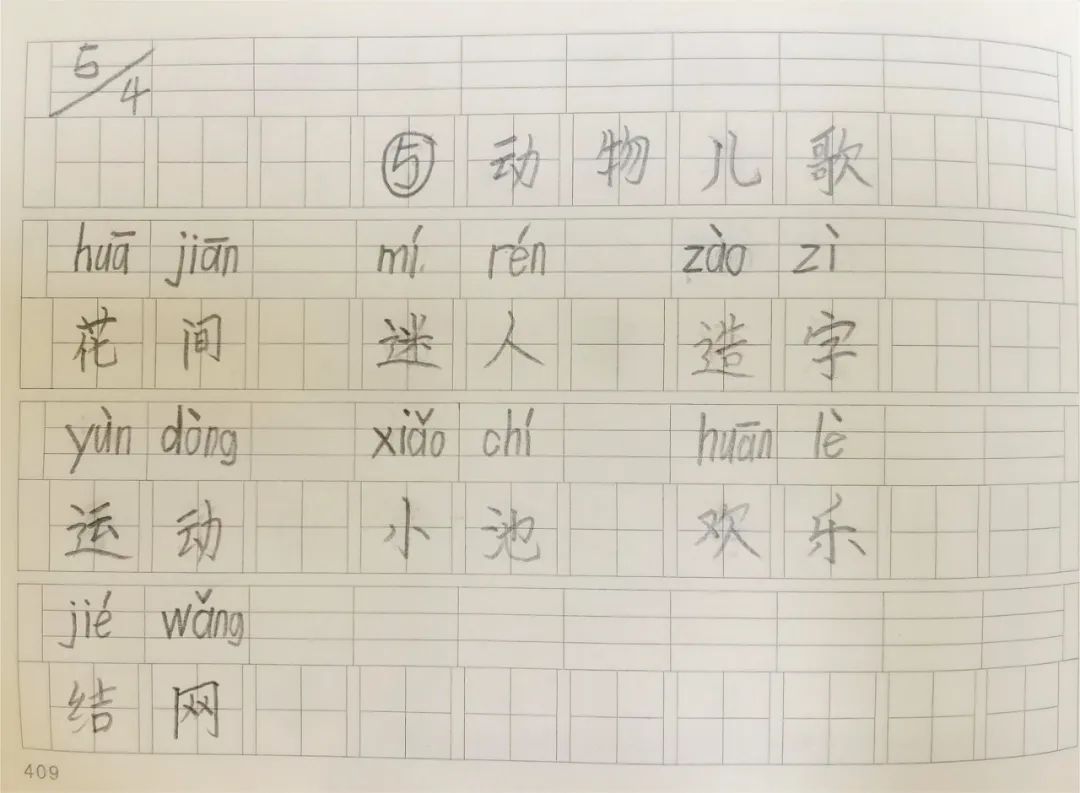 5/4
⑤动物儿歌
huā jiān mí rén zào zì
花间 迷人 造字
yùn dòng xiǎo chí huān lè
运动 小池 欢乐
jié wǎng
结网
409